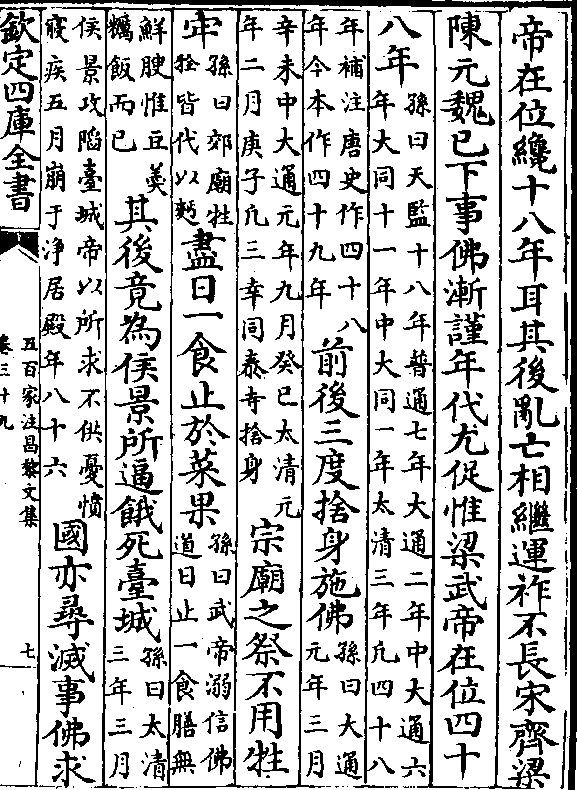 帝在位纔十八年耳其後亂亡相繼運祚不長宋齊梁
陳元魏已下事佛漸謹年代尤促惟梁武帝在位四十
八年
孫曰天監十八年普通七年大通二年中大通六
年大同十一年中大同一年太清三年凡四十八
年補注唐史作四十八
年今本作四十九年
前後三度捨身施佛
孫曰大通
元年三月
辛未中大通元年九月癸巳太清元
年二月庚子凡三幸同泰寺捨身
宗廟之祭不用牲
牢
孫曰郊廟牲
牷皆代以麪
盡日一食止於菜果
孫曰武帝溺信佛
道日止一食膳無
鮮腴惟豆羮
糲飯而已
其後竟為侯景所逼餓死臺城
孫曰太清
三年三月
侯景攻陷臺城帝以所求不供憂憤
寢疾五月崩于浄居殿年八十六
國亦尋滅事佛求
欽定四庫全書
五百家注昌黎文集
卷三十九
七